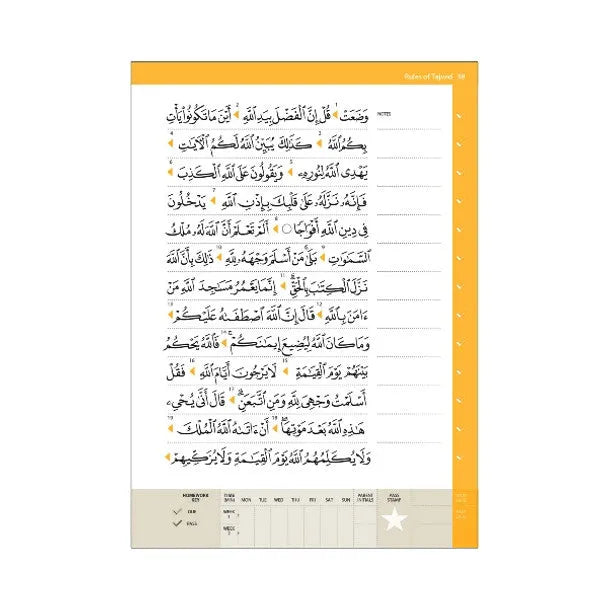 Rules of Tajweed
وَضَعَتْ ◀ 1 قُلْ إِنَّ ٱلْفَضْلَ بِيَدِ ٱللَّهِ ◀ 2 أَيْنَ مَا تَكُونُوا۟ يَأْتِ
NOTES
بِكُمُ ٱللَّهُ ◀ 3 كَذَٰلِكَ يُبَيِّنُ ٱللَّهُ لَكُمُ ٱلْءَايَٰتِ ◀ 4
يَهْدِى ٱللَّهُ لِنُورِهِۦ ◀ 5 وَيَقُولُونَ عَلَى ٱللَّهِ ٱلْكَذِبَ ◀ 6
فَإِنَّهُۥ نَزَّلَهُۥ عَلَىٰ قَلْبِكَ بِإِذْنِ ٱللَّهِ ◀ 7 يَدْخُلُونَ
فِى دِينِ ٱللَّهِ أَفْوَاجًا ◀ 8 أَلَمْ تَعْلَمْ أَنَّ ٱللَّهَ لَهُۥ مُلْكُ
ٱلسَّمَٰوَٰتِ ◀ 9 بَلَىٰ مَنْ أَسْلَمَ وَجْهَهُۥ لِلَّهِ ◀ 10 ذَٰلِكَ بِأَنَّ ٱللَّهَ
نَزَّلَ ٱلْكِتَٰبَ بِٱلْحَقِّ ◀ 11 إِنَّمَا يَعْمُرُ مَسَٰجِدَ ٱللَّهِ مَنْ
ءَامَنَ بِٱللَّهِ ◀ 12 قَالَ إِنَّ ٱللَّهَ ٱصْطَفَىٰهُ عَلَيْكُمْ ◀ 13
وَمَا كَانَ ٱللَّهُ لِيُضِيعَ إِيمَٰنَكُمْ ◀ 14 فَٱللَّهُ يَحْكُمُ
بَيْنَهُمْ يَوْمَ ٱلْقِيَٰمَةِ ◀ 15 لَا يَرْجُونَ أَيَّامَ ٱللَّهِ ◀ 16 فَقُلْ
أَسْلَمْتُ وَجْهِىَ لِلَّهِ وَمَنِ ٱتَّبَعَنِ ◀ 17 قَالَ أَنَّىٰ يُحْىِۦ
هَٰذِهِ ٱللَّهُ بَعْدَ مَوْتِهَا ◀ 18 أَنْ ءَاتَىٰهُ ٱللَّهُ ٱلْمُلْكَ ◀ 19
وَلَا يُكَلِّمُهُمُ ٱللَّهُ يَوْمَ ٱلْقِيَٰمَةِ وَلَا يُزَكِّيهِمْ
HOMEWORK KEY
MON TUE WED THU FRI SAT SUN
PARENT INITIALS
PASS STAMP
DUE
PASS
WEEK
WEEK